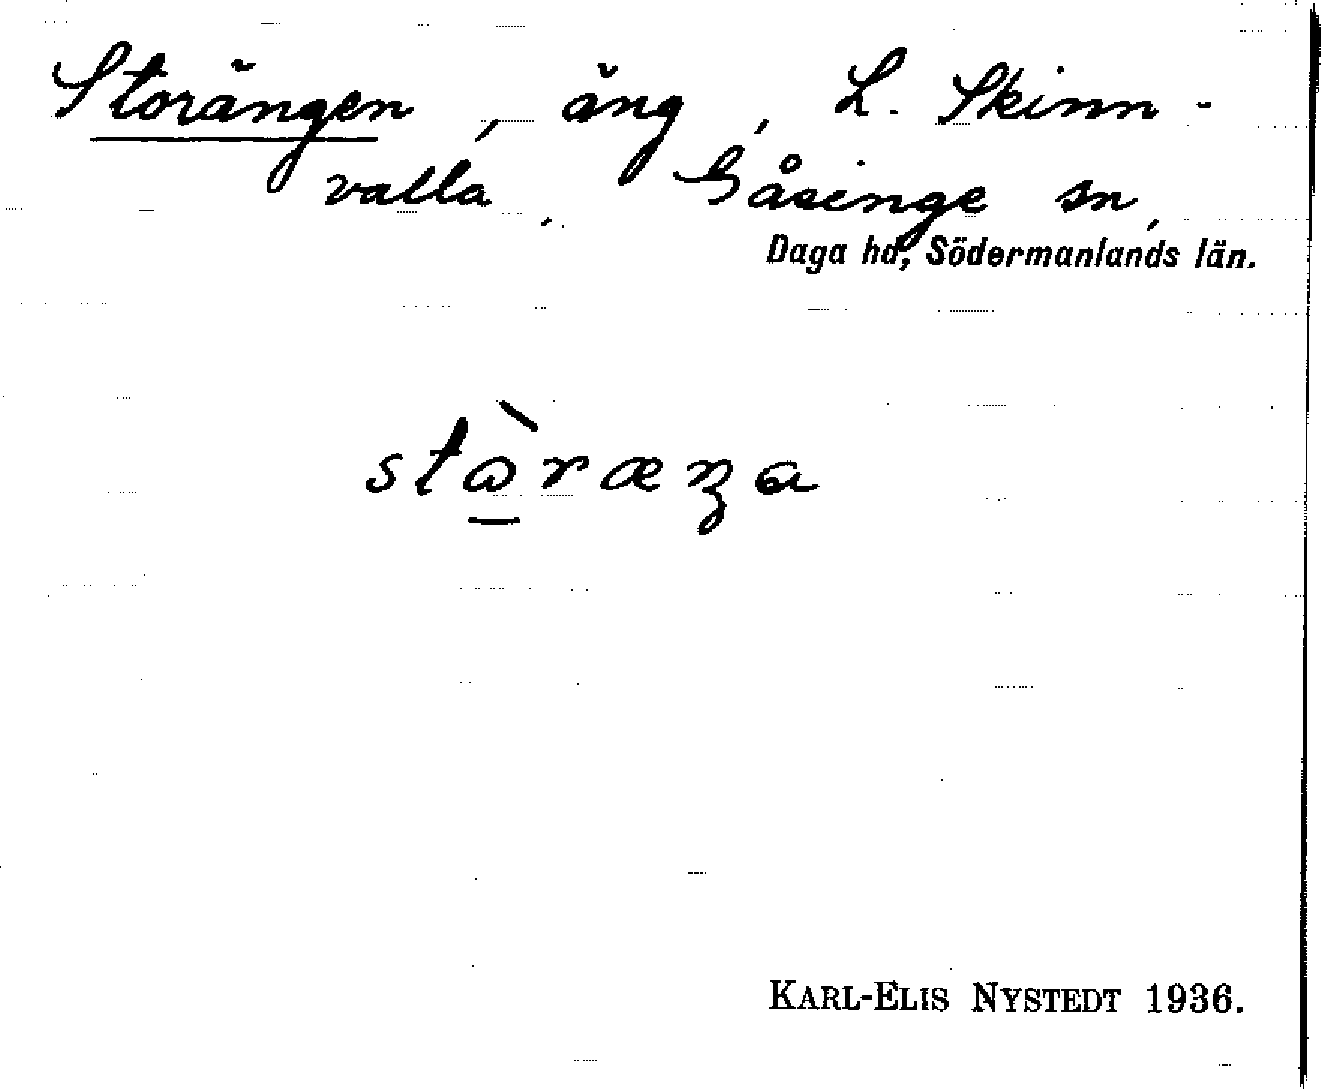 Storängen, äng, L. Skinn-
valla. Gåsinge sn,
Daga hd, Södermanlands län.
stὼ̲ræŋa
KARL-ELIS NYSTEDT 1936.